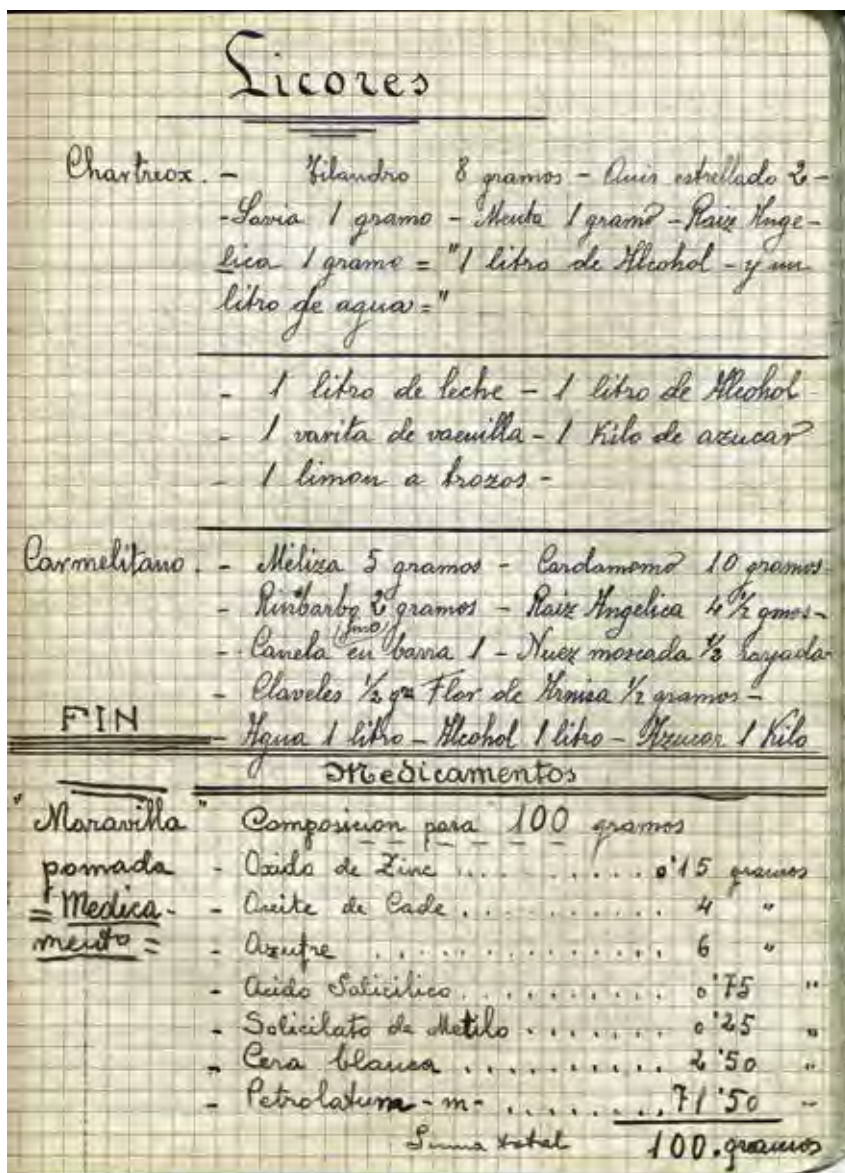 Licores
Chartreox. - Filandro 8 gramos - Anis estrellado 2 -
- Savia 1 gramo - Menta 1 gramo - Raiz Ange-
lica 1 gramo = "1 litro de Alcohol - y un
litro de agua ="
- 1 litro de leche - 1 litro de Alcohol
- 1 varita de vaenilla - 1 Kilo de azucar
- 1 limon a trozos -
Carmelitano. - Méliza 5 gramos - Cardamomo 10 gramos -
- Rinbarbo 2 gramos - Raiz Angelica 4 1/2 gmos -
(fino)
- Canela en barra 1 - Nuez moscada 1/2 rayada
- Claveles 1/2 gr Flor de Arnica 1/2 gramos -
FIN - Agua 1 litro - Alcohol 1 litro - Azucar 1 Kilo
Medicamentos
"Maravilla" Composicion para 100 gramos
pomada - Oxido de Zinc .......... 0'15 gramos
= Medica- - Aceite de Cade .......... 4 "
mento = - Azufre .......... 6 "
- Acido Salicilico .......... 0'75 "
- Solicilato de Metilo ....... 0'25 "
- Cera blanca .......... 2'50 "
- Petrolatum - m - ........ 71'50 "
Suma total 100. gramos